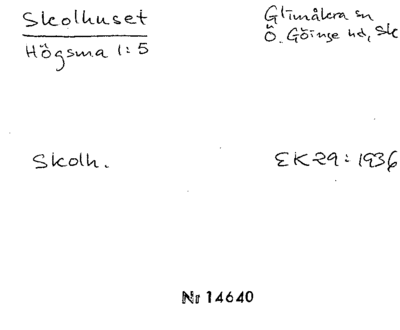 Skolhuset
Högsma 1:5
Glimåkra sn
Ö. Göinge hd, Sk
Skolh.
EK29:1936
Nr 14640